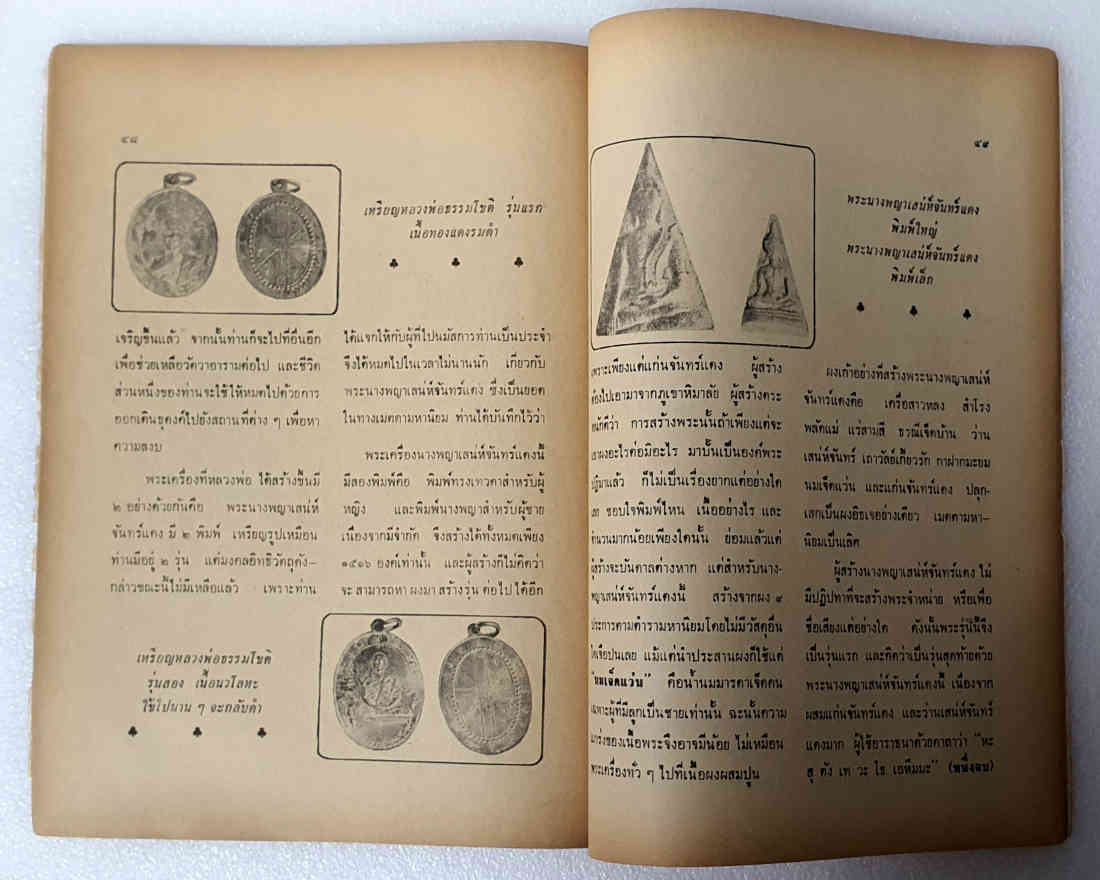 ๔๘
เหรียญหลวงพ่อธรรมโชติ รุ่นแรก
เนื้อทองแดงรมดำ
เจริญขึ้นแล้ว จากนั้นท่านก็จะไปที่อื่นอีก
เพื่อช่วยเหลือวัดวาอารามต่อไป และชีวิต
ส่วนหนึ่งของท่านจะใช้ให้หมดไปด้วยการ
ออกเดินธุดงค์ไปยังสถานที่ต่าง ๆ เพื่อหา
ความสงบ
พระเครื่องที่หลวงพ่อ ได้สร้างขึ้นมี
๒ อย่างด้วยกันคือ พระนางพญาเสน่ห์
จันทร์แดง มี ๒ พิมพ์ เหรียญรูปเหมือน
ท่านมีอยู่ ๒ รุ่น แต่มงคลอิทธิวัตถุดัง–
กล่าวขณะนี้ไม่มีเหลือแล้ว เพราะท่าน
เหรียญหลวงพ่อธรรมโชติ
รุ่นสอง เนื้อนวโลหะ
ใช้ไปนาน ๆ จะกลับดำ
ได้แจกให้กับผู้ที่ไปนมัสการท่านเป็นประจำ
จึงได้หมดไปในเวลาไม่นานนัก เกี่ยวกับ
พระนางพญาเสน่ห์จันทร์แดง ซึ่งเป็นยอด
ในทางเมตตามหานิยม ท่านได้บันทึกไว้ว่า
พระเครื่องนางพญาเสน่ห์จันทร์แดงนี้
มีสองพิมพ์คือ พิมพ์ทรงเทวดาสำหรับผู้
หญิง และพิมพ์นางพญาสำหรับผู้ชาย
เนื่องจากมีจำกัด จึงสร้างได้ทั้งหมดเพียง
๑๔๑๖ องค์เท่านั้น และผู้สร้างก็ไม่คิดว่า
จะสามารถหา ผงมา สร้างรุ่น ต่อไป ได้อีก
๔๙
พระนางพญาเสน่ห์จันทร์แดง
พิมพ์ใหญ่
พระนางพญาเสน่ห์จันทร์แดง
พิมพ์เล็ก
เพราะเพียงแต่แก่นจันทร์แดง ผู้สร้าง
ต้องไปเอามาจากภูเขาหิมาลัย ผู้สร้างตระ
หนักดีว่า การสร้างพระนั้นถ้าเพียงแต่จะ
เอาผงอะไรต่อมิอะไร มาปั้นเป็นองค์พระ
ปฏิมาแล้ว ก็ไม่เป็นเรื่องยากแต่อย่างใด
เลย ชอบใจพิมพ์ไหน เนื้ออย่างไร และ
จำนวนมากน้อยเพียงใดนั้น ย่อมแล้วแต่
ผู้สร้างจะบันดาลต่างหาก แต่สำหรับนาง-
พญาเสน่ห์จันทร์แดงนี้ สร้างจากผง ๙
ประการตามตำรามหานิยมโดยไม่มีวัสดุอื่น
ใดเจือปนเลย แม้แต่น้ำประสานผงก็ใช้แต่
"นมเจ็ดแว่น" คือน้ำนมมารดาเจ็ดคน
เฉพาะผู้ที่มีลูกเป็นชายเท่านั้น ฉะนั้นความ
แกร่งของเนื้อพระจึงอาจมีน้อย ไม่เหมือน
พระเครื่องทั่ว ๆ ไปที่เนื้อผงผสมปูน
ผงเก้าอย่างที่สร้างพระนางพญาเสน่ห์
จันทร์แดงคือ เครือสาวหลง สำโรง
พลัดแม่ แร่สามสี ธรณีเจ็ดบ้าน ว่าน
เสน่ห์จันทร์ เถาวัลย์เกี้ยวรัก กาฝากมะยม
นมเจ็ดแว่น และแก่นจันทร์แดง ปลุก-
เสกเป็นผงอิธเจอย่างเดียว เมตตามหา-
นิยมเป็นเลิศ
ผู้สร้างนางพญาเสน่ห์จันทร์แดง ไม่
มีปฏิปทาที่จะสร้างพระจำหน่าย หรือเพื่อ
ชื่อเสียงแต่อย่างใด ดังนั้นพระรุ่นนี้จึง
เป็นรุ่นแรก และคิดว่าเป็นรุ่นสุดท้ายด้วย
พระนางพญาเสน่ห์จันทร์แดงนี้ เนื่องจาก
ผสมแก่นจันทร์แดง และว่านเสน่ห์จันทร์
แดงมาก ผู้ใช้อาราธนาด้วยคาถาว่า "หะ
สุ ตัง เท วะ โร เอหิมมะ" (หนึ่งจบ)